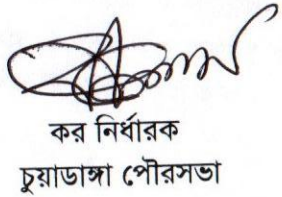 কর নির্ধারক
চুয়াডাঙ্গা পৌরসভা